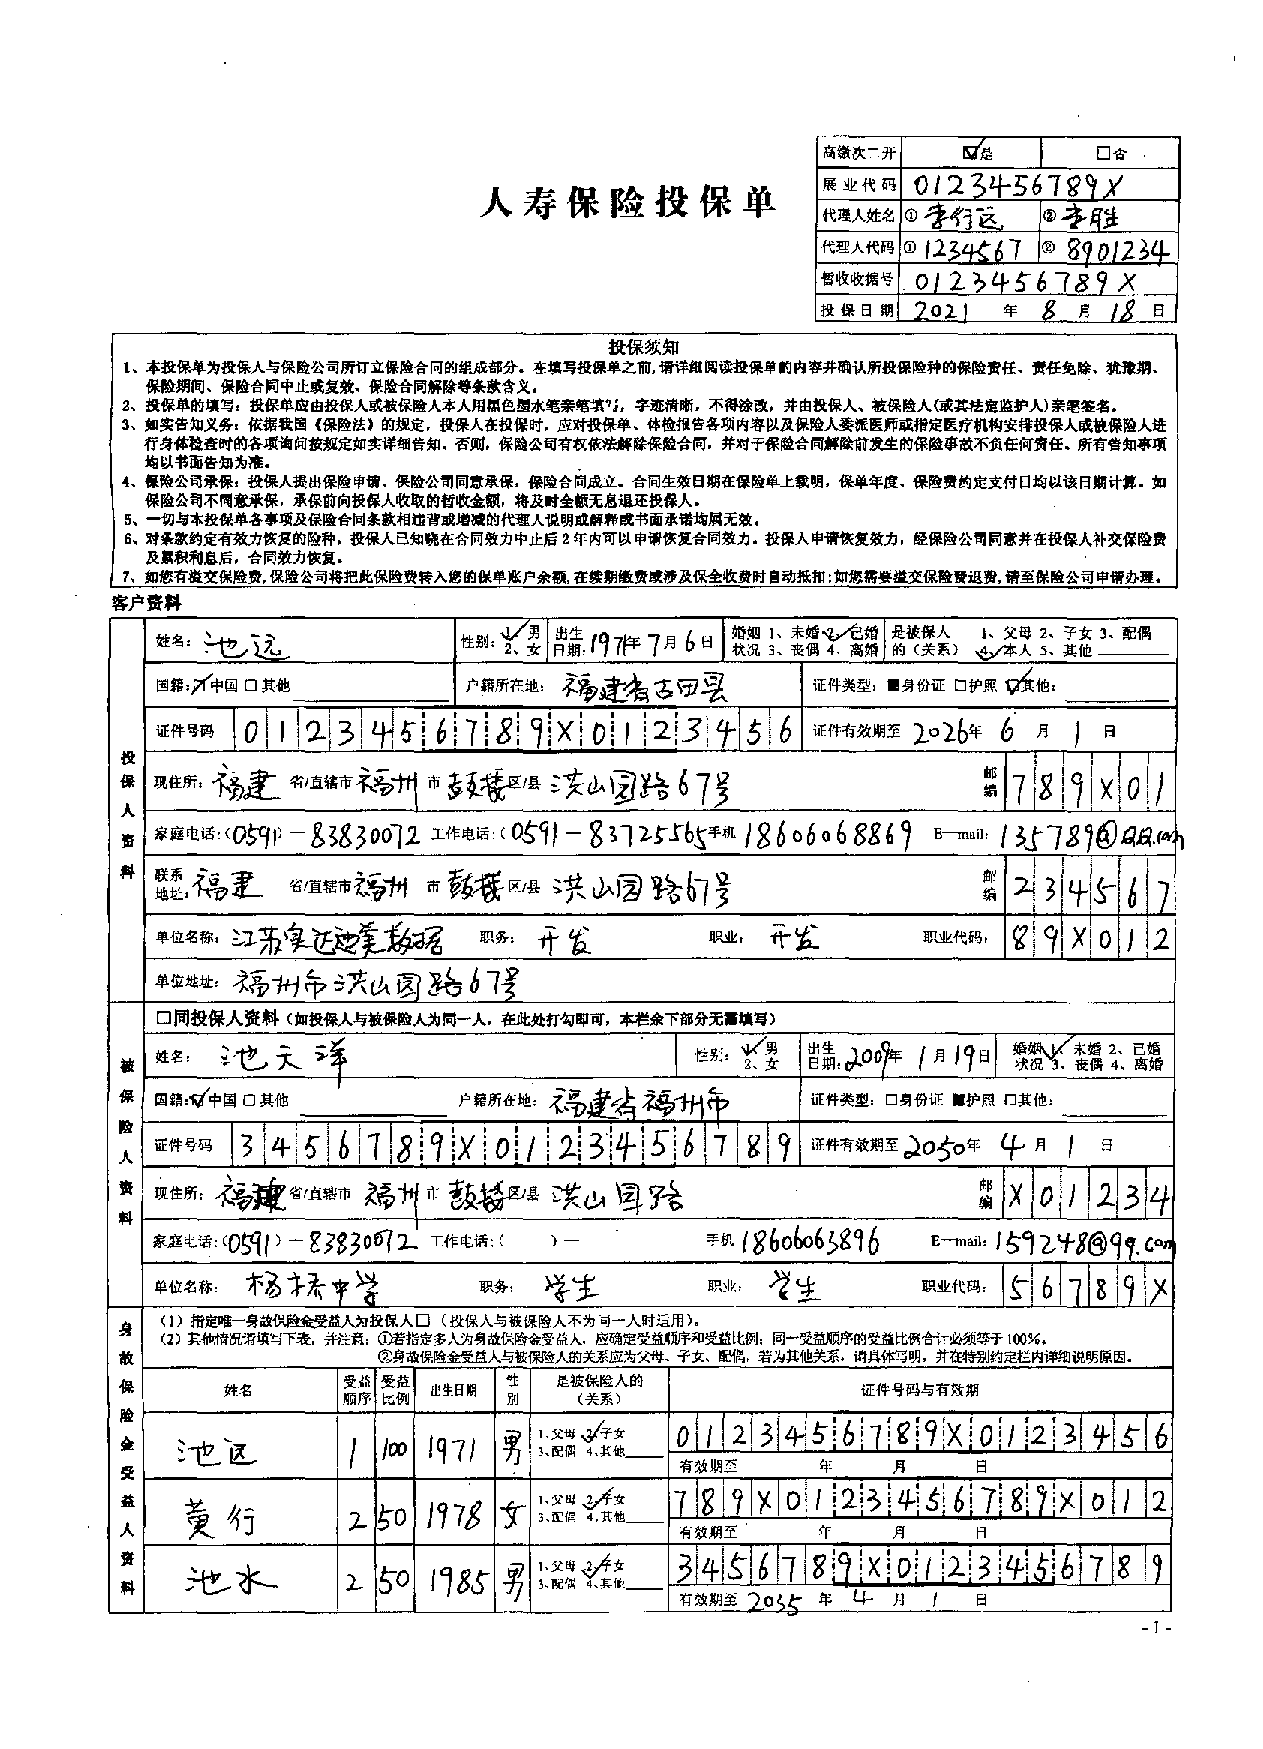 高缴次二开 ☑是 □否
展业代码 0123456789X
人寿保险投保单
代理人姓名 ① 李行远 ② 李胜
代理人代码 ① 1234567 ② 8901234
暂收收据号 0123456789X
投保日期 2021 年 8 月 18 日
投保须知
1、本投保单为投保人与保险公司所订立保险合同的组成部分。在填写投保单之前,请详细阅读投保单的内容并确认所投保险种的保险责任、责任免除、犹豫期、
保险期间、保险合同中止或复效、保险合同解除等条款含义。
2、投保单的填写：投保单应由投保人或被保险人本人用黑色墨水笔亲笔填写，字迹清晰，不得涂改，并由投保人、被保险人(或其法定监护人)亲笔签名。
3、如实告知义务：依据我国《保险法》的规定，投保人在投保时，应对投保单、体检报告各项内容以及保险人委派医师或指定医疗机构安排投保人或被保险人进
行身体检查时的各项询问按规定如实详细告知，否则，保险公司有权依法解除保险合同，并对于保险合同解除前发生的保险事故不负任何责任。所有告知事项
均以书面告知为准。
4、保险公司承保：投保人提出保险申请、保险公司同意承保，保险合同成立。合同生效日期在保险单上载明，保单年度、保险费约定支付日均以该日期计算。如
保险公司不同意承保，承保前向投保人收取的暂收金额，将及时全额无息退还投保人。
5、一切与本投保单各事项及保险合同条款相违背或增减的代理人说明或解释或书面承诺均属无效。
6、对条款约定有效力恢复的险种，投保人已知晓在合同效力中止后2年内可以申请恢复合同效力。投保人申请恢复效力，经保险公司同意并在投保人补交保险费
及累积利息后，合同效力恢复。
7、如您有溢交保险费,保险公司将把此保险费转入您的保单账户余额,在续期缴费或涉及保全收费时自动抵扣;如您需要溢交保险费退费,请至保险公司申请办理。
客户资料
投保人资料
姓名：池远 性别：1、男 2、女 出生日期：1971年7月6日 婚姻状况 1、未婚 2、已婚 3、丧偶 4、离婚 是被保人的（关系） 1、父母 2、子女 3、配偶 4、本人 5、其他
国籍：☑中国 □其他 户籍所在地：福建省古田县 证件类型：■身份证 □护照 ☑其他：
证件号码 0123456789X0123456 证件有效期至 2026年 6 月 1 日
现住所：福建 省/直辖市 福州 市 鼓楼 区/县 洪山园路67号 邮编 789X01
家庭电话：(0591)－83830072 工作电话：(0591－83725565 手机 18606068869 E—mail：135789@qq.com
联系地址：福建 省/直辖市 福州 市 鼓楼 区/县 洪山园路67号 邮编 234567
单位名称：江苏实达迪美数据 职务：开发 职业：开发 职业代码：89X012
单位地址：福州市洪山园路67号
被保险人资料
□同投保人资料（如投保人与被保险人为同一人，在此处打勾即可，本栏余下部分无需填写）
姓名：池天洋 性别：1、男 2、女 出生日期：2009年 1月19日 婚姻状况 1、未婚 2、已婚 3、丧偶 4、离婚
国籍：☑中国 □其他 户籍所在地：福建省福州市 证件类型：□身份证 ■护照 □其他：
证件号码 3456789X0123456789 证件有效期至 2050年 4 月 1 日
现住所：福建 省/直辖市 福州 市 鼓楼 区/县 洪山园路 邮编 X01234
家庭电话：(0591)－83830072 工作电话：( )－ 手机 18606063896 E—mail：159248@qq.com
单位名称：杨桥中学 职务：学生 职业：学生 职业代码：56789X
身故保险金受益人资料
（1）指定唯一身故保险金受益人为投保人□（投保人与被保险人不为同一人时适用）。
（2）其他情况请填写下表，并注意：①若指定多人为身故保险金受益人，应确定受益顺序和受益比例；同一受益顺序的受益比例合计必须等于100%。
②身故保险金受益人与被保险人的关系应为父母、子女、配偶，若为其他关系，请具体写明，并在特别约定栏内详细说明原因。
姓名 受益顺序 受益比例 出生日期 性别 是被保险人的（关系） 证件号码与有效期
池区 1 100 1971 男 1、父母 2、子女 3、配偶 4、其他 0123456789X0123456
有效期至 年 月 日
黄行 2 50 1978 女 1、父母 2、子女 3、配偶 4、其他 789X0123456789X012
有效期至 年 月 日
池水 2 50 1985 男 1、父母 2、子女 3、配偶 4、其他 3456789X0123456789
有效期至 2035 年 4 月 1 日
- 1 -